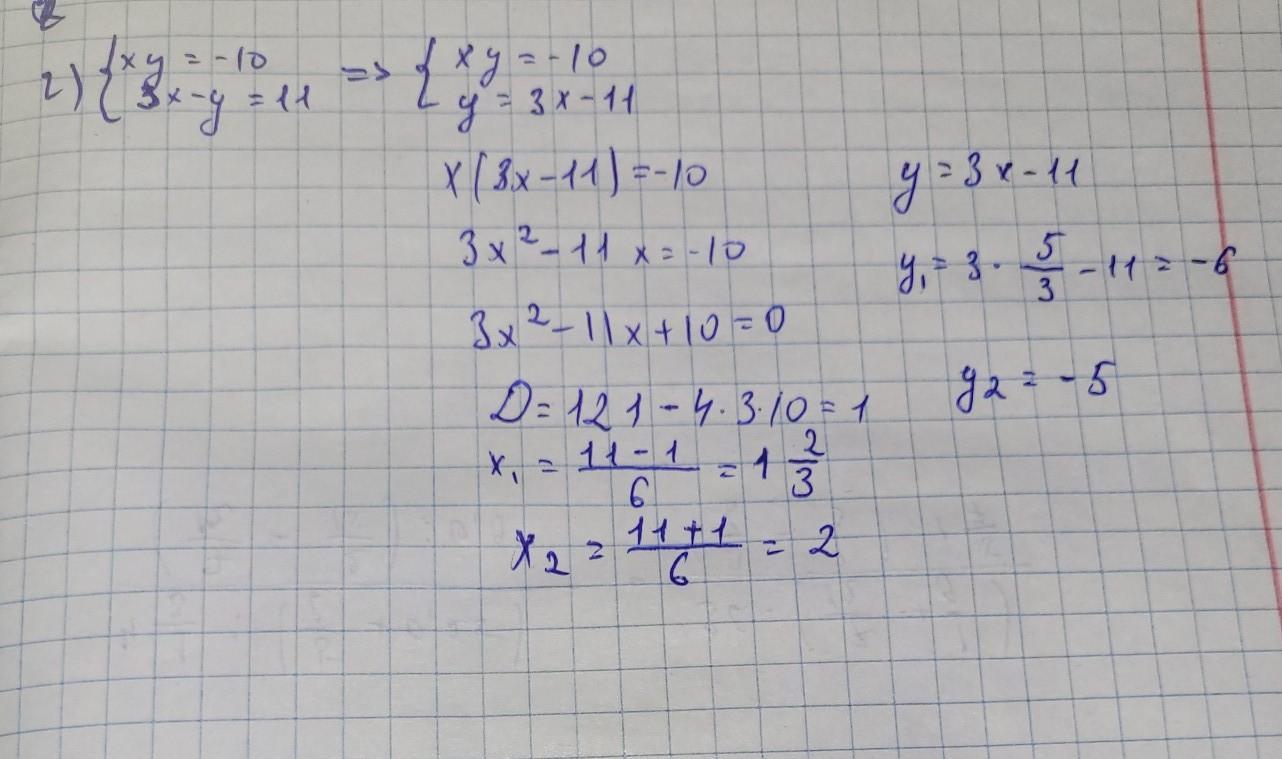 2) { xy = -10 => { xy = -10
3x - y = 11 y = 3x - 11
x(3x - 11) = -10
3x² - 11x = -10
3x² - 11x + 10 = 0
D = 121 - 4·3·10 = 1
x₁ = (11 - 1)/6 = 1 2/3
x₂ = (11 + 1)/6 = 2
y = 3x - 11
y₁ = 3 · 5/3 - 11 = -6
y₂ = -5